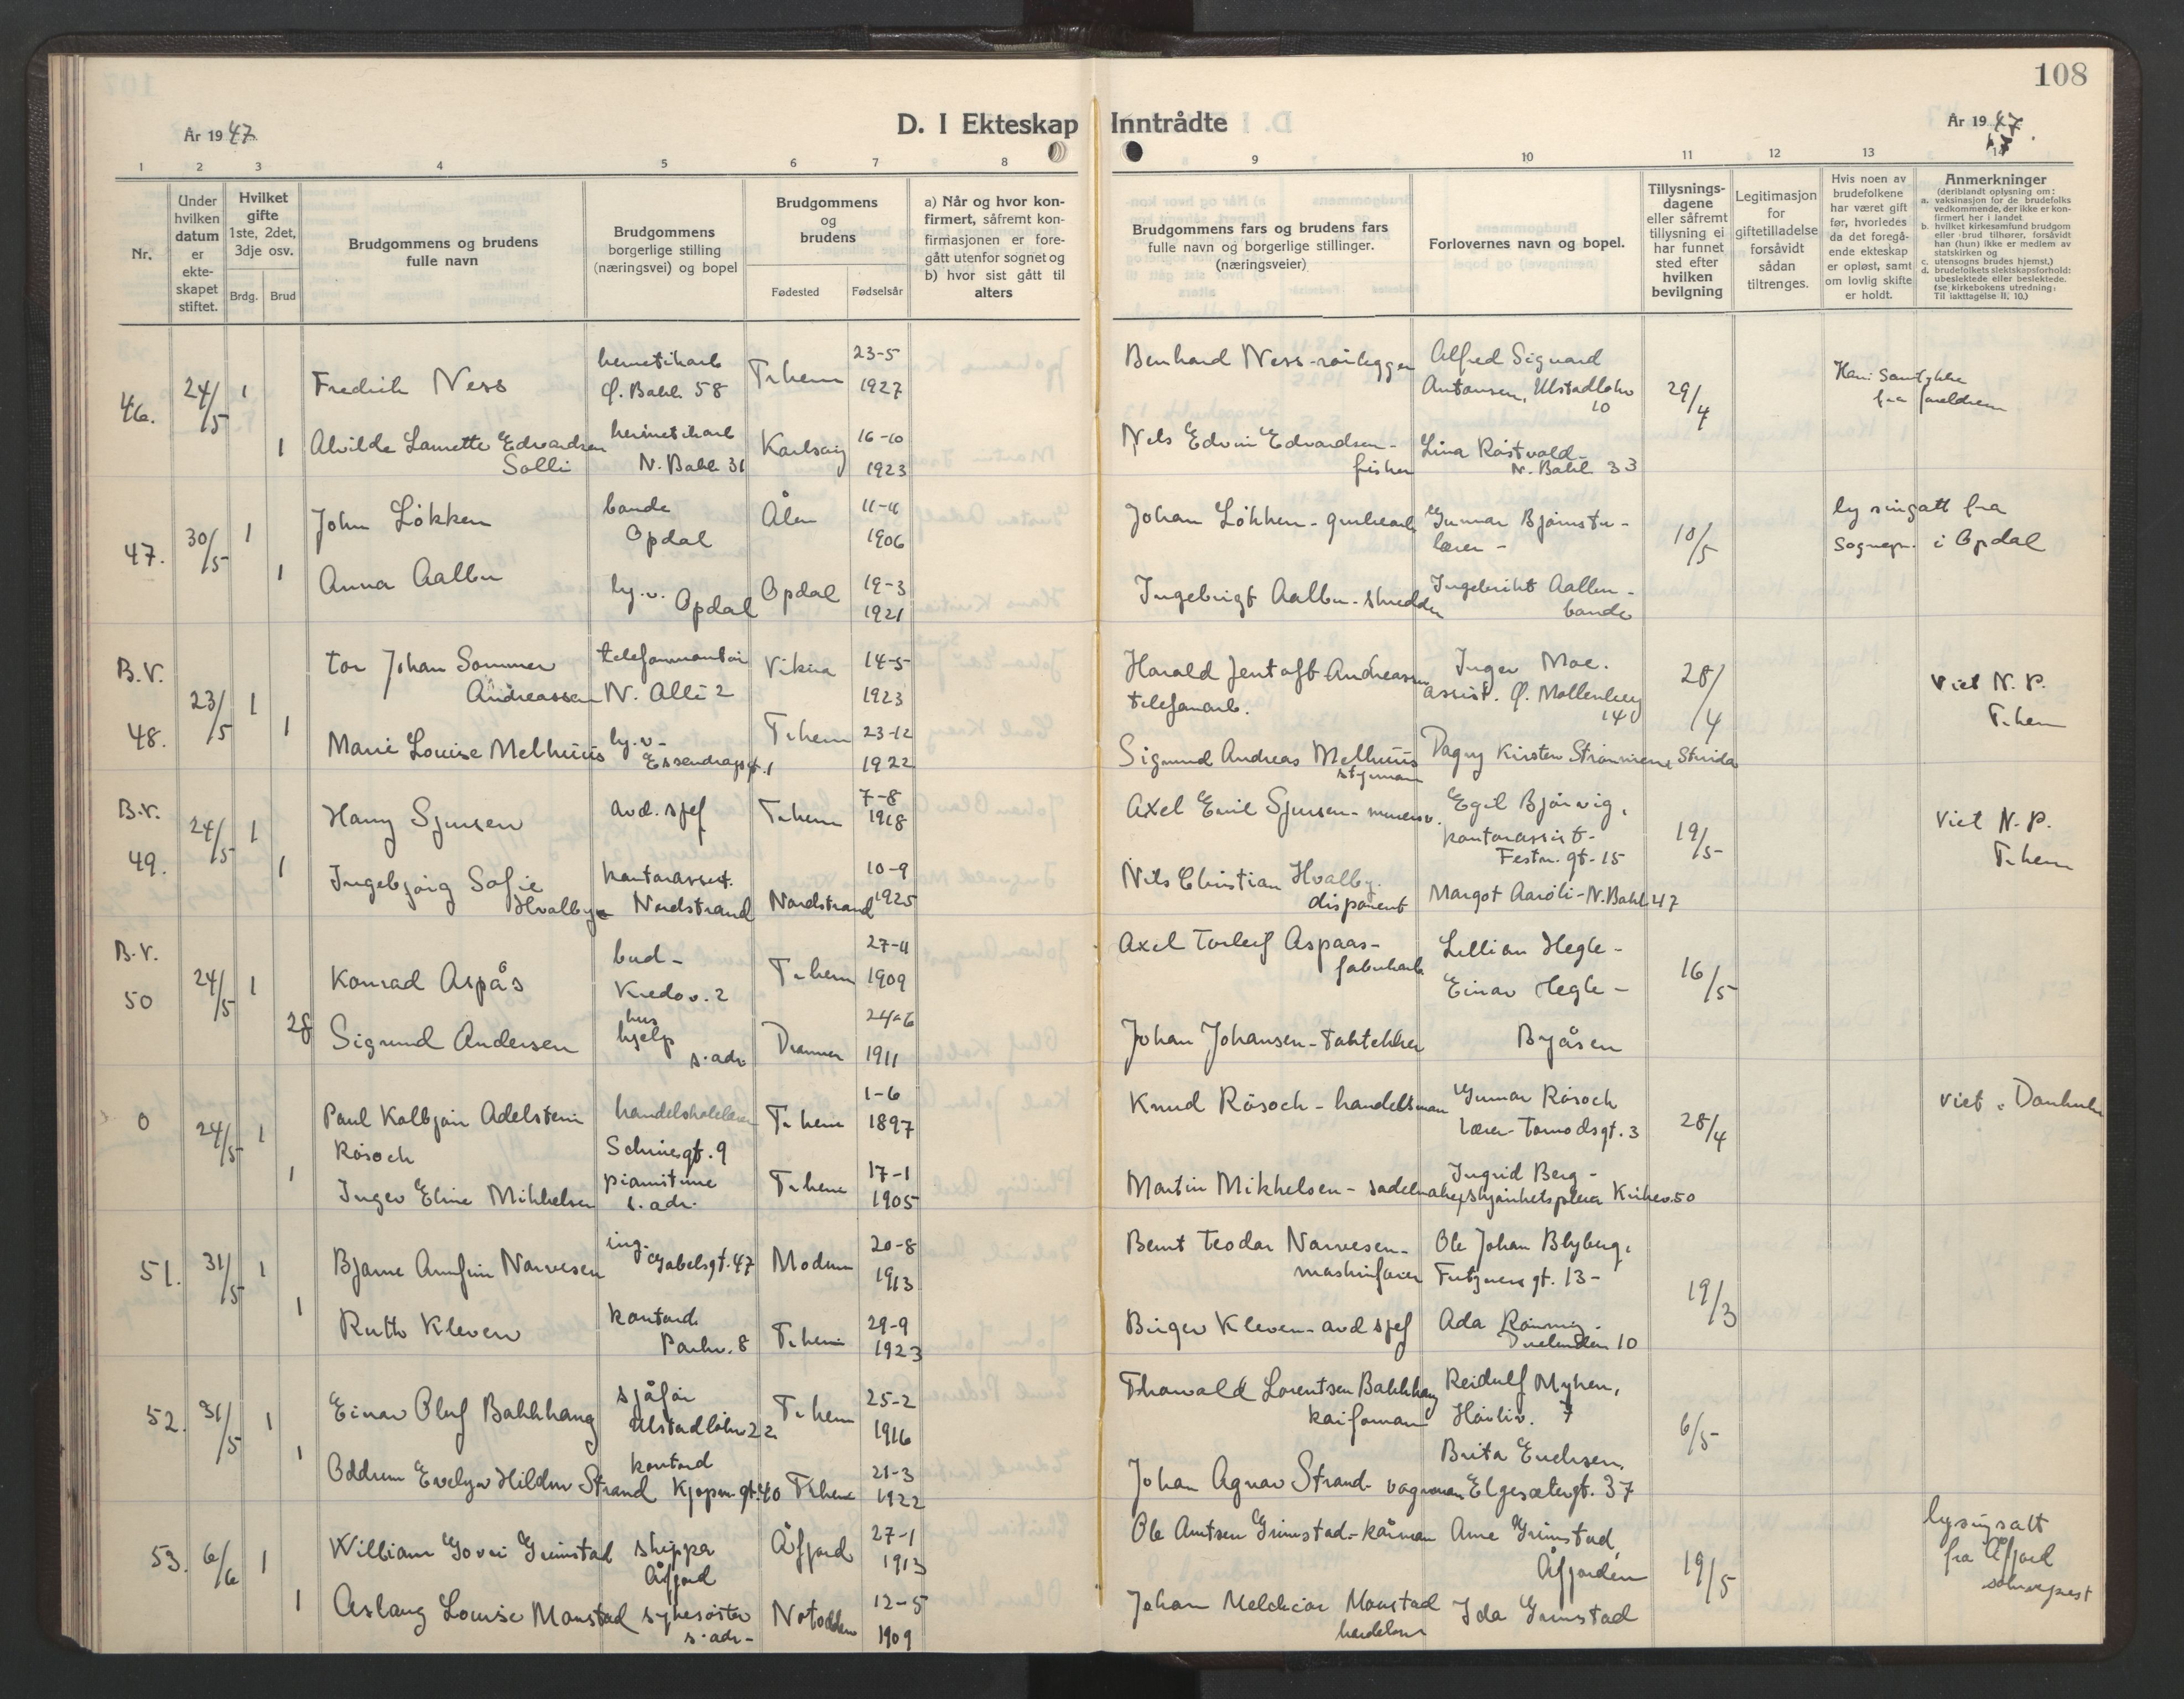 108
År 1947
D. I Ekteskap Inntrådte
År 1947
47.
1 2 3 4 5 6 7 8 9 10 11 12 13 14
Nr.
Under hvilken datum er ekteskapet stiftet.
Hvilket gifte 1ste, 2det, 3dje osv.
Brdg. Brud
Brudgommens og brudens fulle navn
Brudgommens borgerlige stilling (næringsvei) og bopel
Brudgommens og brudens
Fødested Fødselsår
a) Når og hvor konfirmert, såfremt konfirmasjonen er foregått utenfor sognet og
b) hvor sist gått til alters
Brudgommens fars og brudens fars fulle navn og borgerlige stillinger. (næringsveier)
Forlovernes navn og bopel.
Tillysningsdagene eller såfremt tillysning ei har funnet sted efter hvilken bevilgning
Legitimasjon for giftetilladelse forsåvidt sådan tiltrenges.
Hvis noen av brudefolkene har været gift før, hvorledes da det foregående ekteskap er opløst, samt om lovlig skifte er holdt.
Anmerkninger
(deriblandt oplysning om:
a. vaksinasjon for de brudefolks vedkommende, der ikke er konfirmert her i landet
b. hvilket kirkesamfund brudgom eller brud tilhører, forsåvidt han (hun) ikke er medlem av statskirken og
c. utensogns brudes hjemst.)
d. brudefolkets slektskapsforhold: ubeslektede eller beslektede.
(se kirkebokens utredning: Til iakttagelse II, 10.)
46. 24/5 1 Fredrik Ness hermetikarb Ø. Bakl. 58 T.hem 23-5 1927 Bernhard Ness - rørlegger Alfred Sigvard Antonsen, Ulstadløkv 10 29/4 Har samtykke fra foreldrene
1 Alvilde Laurette Edvardsen Solli hermetikarb N. Bakl. 31 Karlsøy 16-10 1923 Nels Edvin Edvardsen - fisker Lina Rostvold - N. Bakl. 33
47. 30/5 1 John Løkken bonde Opdal Ålen 11-11 1906 Johan Løkken - grubearb Gunnar Bjørnstu - lærer - 10/5 lysingatt fra sognepr. i Opdal
1 Anna Aalbu hj.v. Opdal Opdal 19-3 1921 Ingebrigt Aalbu - skredder Ingebrikt Aalbu - bonde
B.V. 48. 23/5 1 Tor Johan Sommer Andreassen telefonmontør N. Allé 2 Vikna 14-5 1923 Harald Jentoft Andreassen telefonarb. Inger Moe. assist. Ø. Møllenberg 14 28/4 Viet N. P. T.hem
1 Marie Louise Melhuus hj.v. - Essendropsgt. 1 T.hem 23-12 1922 Sigmund Andreas Melhuus styrmann Dagny Kirsten Strømmene, Strinda
B.V. 49. 24/5 1 Harry Sjursen avd. sjef T.hem 7-8 1918 Axel Emil Sjursen - murerv. Egil Bjørvig, kontorassist - Festn. gt. 15 19/5 Viet N. P. T.hem
1 Ingebjørg Sofie Hvalbye kontorassist. Nordstrand Nordstrand 10-9 1925 Nils Christian Hvalby. disponent Margot Aarøli - N. Bakl. 47
B.V. 50 24/5 1 Konrad Aspås bud - Kredov. 2 T.hem 27-11 1909 Axel Torleif Aspaas - fabrikarb Lillian Hegle - Einar Hegle - 16/5
28 Sigrund Andersen hushjelp s. adr Drammen 24-6 1911 Johan Johansen - taktekker Byåsen
0 24/5 1 Paul Kolbjørn Adelsten Røsoch Schivesgt. 9 T.hem 1-6 1897 Knud Røsoch - handelsman Gunnar Røsoch lærer - Tormodsgt. 3 28/4 Viet i Domkirken
1 Inger Eline Mikkelsen s. adr. T.hem 17-1 1905 Martin Mikkelsen - sadelmaker Ingrid Berg - skjønhetspleier Kirkev. 50
51. 31/5 1 Bjarne Arnfinn Narvesen ing. Gabelsgt. 47 Modum 20-8 1913 Bernt Teodor Narvesen - maskinfører Ole Johan Blyberg, gt. 13 - 19/3
1 Ruth Kleven kontord. Parkv. 8 T.hem 29-9 1923 Birger Kleven - avd sjef Ada Rønning. 10
52. 31/5 1 Einar Oluf Bakkhaug sjåfør Ulstadløkv 22 T.hem 25-2 1916 Thorvald Lorentsen Bakkhaug kaiforman Reidulf Myhren, Havliv. 7 6/5
1 Oddrun Evelyn Hildur Strand kontord Kjøpm. gt. 40 T.hem 21-3 1922 Johan Agnar Strand - vognman Brita Erichsen, Elgesætergt. 37
53. 6/6 1 William Grimstad skipper Åfjord Åfjord 27-1 1913 Ole Antsen Grimstad - kårman Arne Grimstad, Åfjorden 19/5 lysingsatt fra Åfjord sokneprest
1 Aslaug Louise Monstad sykesøster s. adr - Notodden 12-5 1909 Johan Melchior Monstad handelsm Ida Grimstad